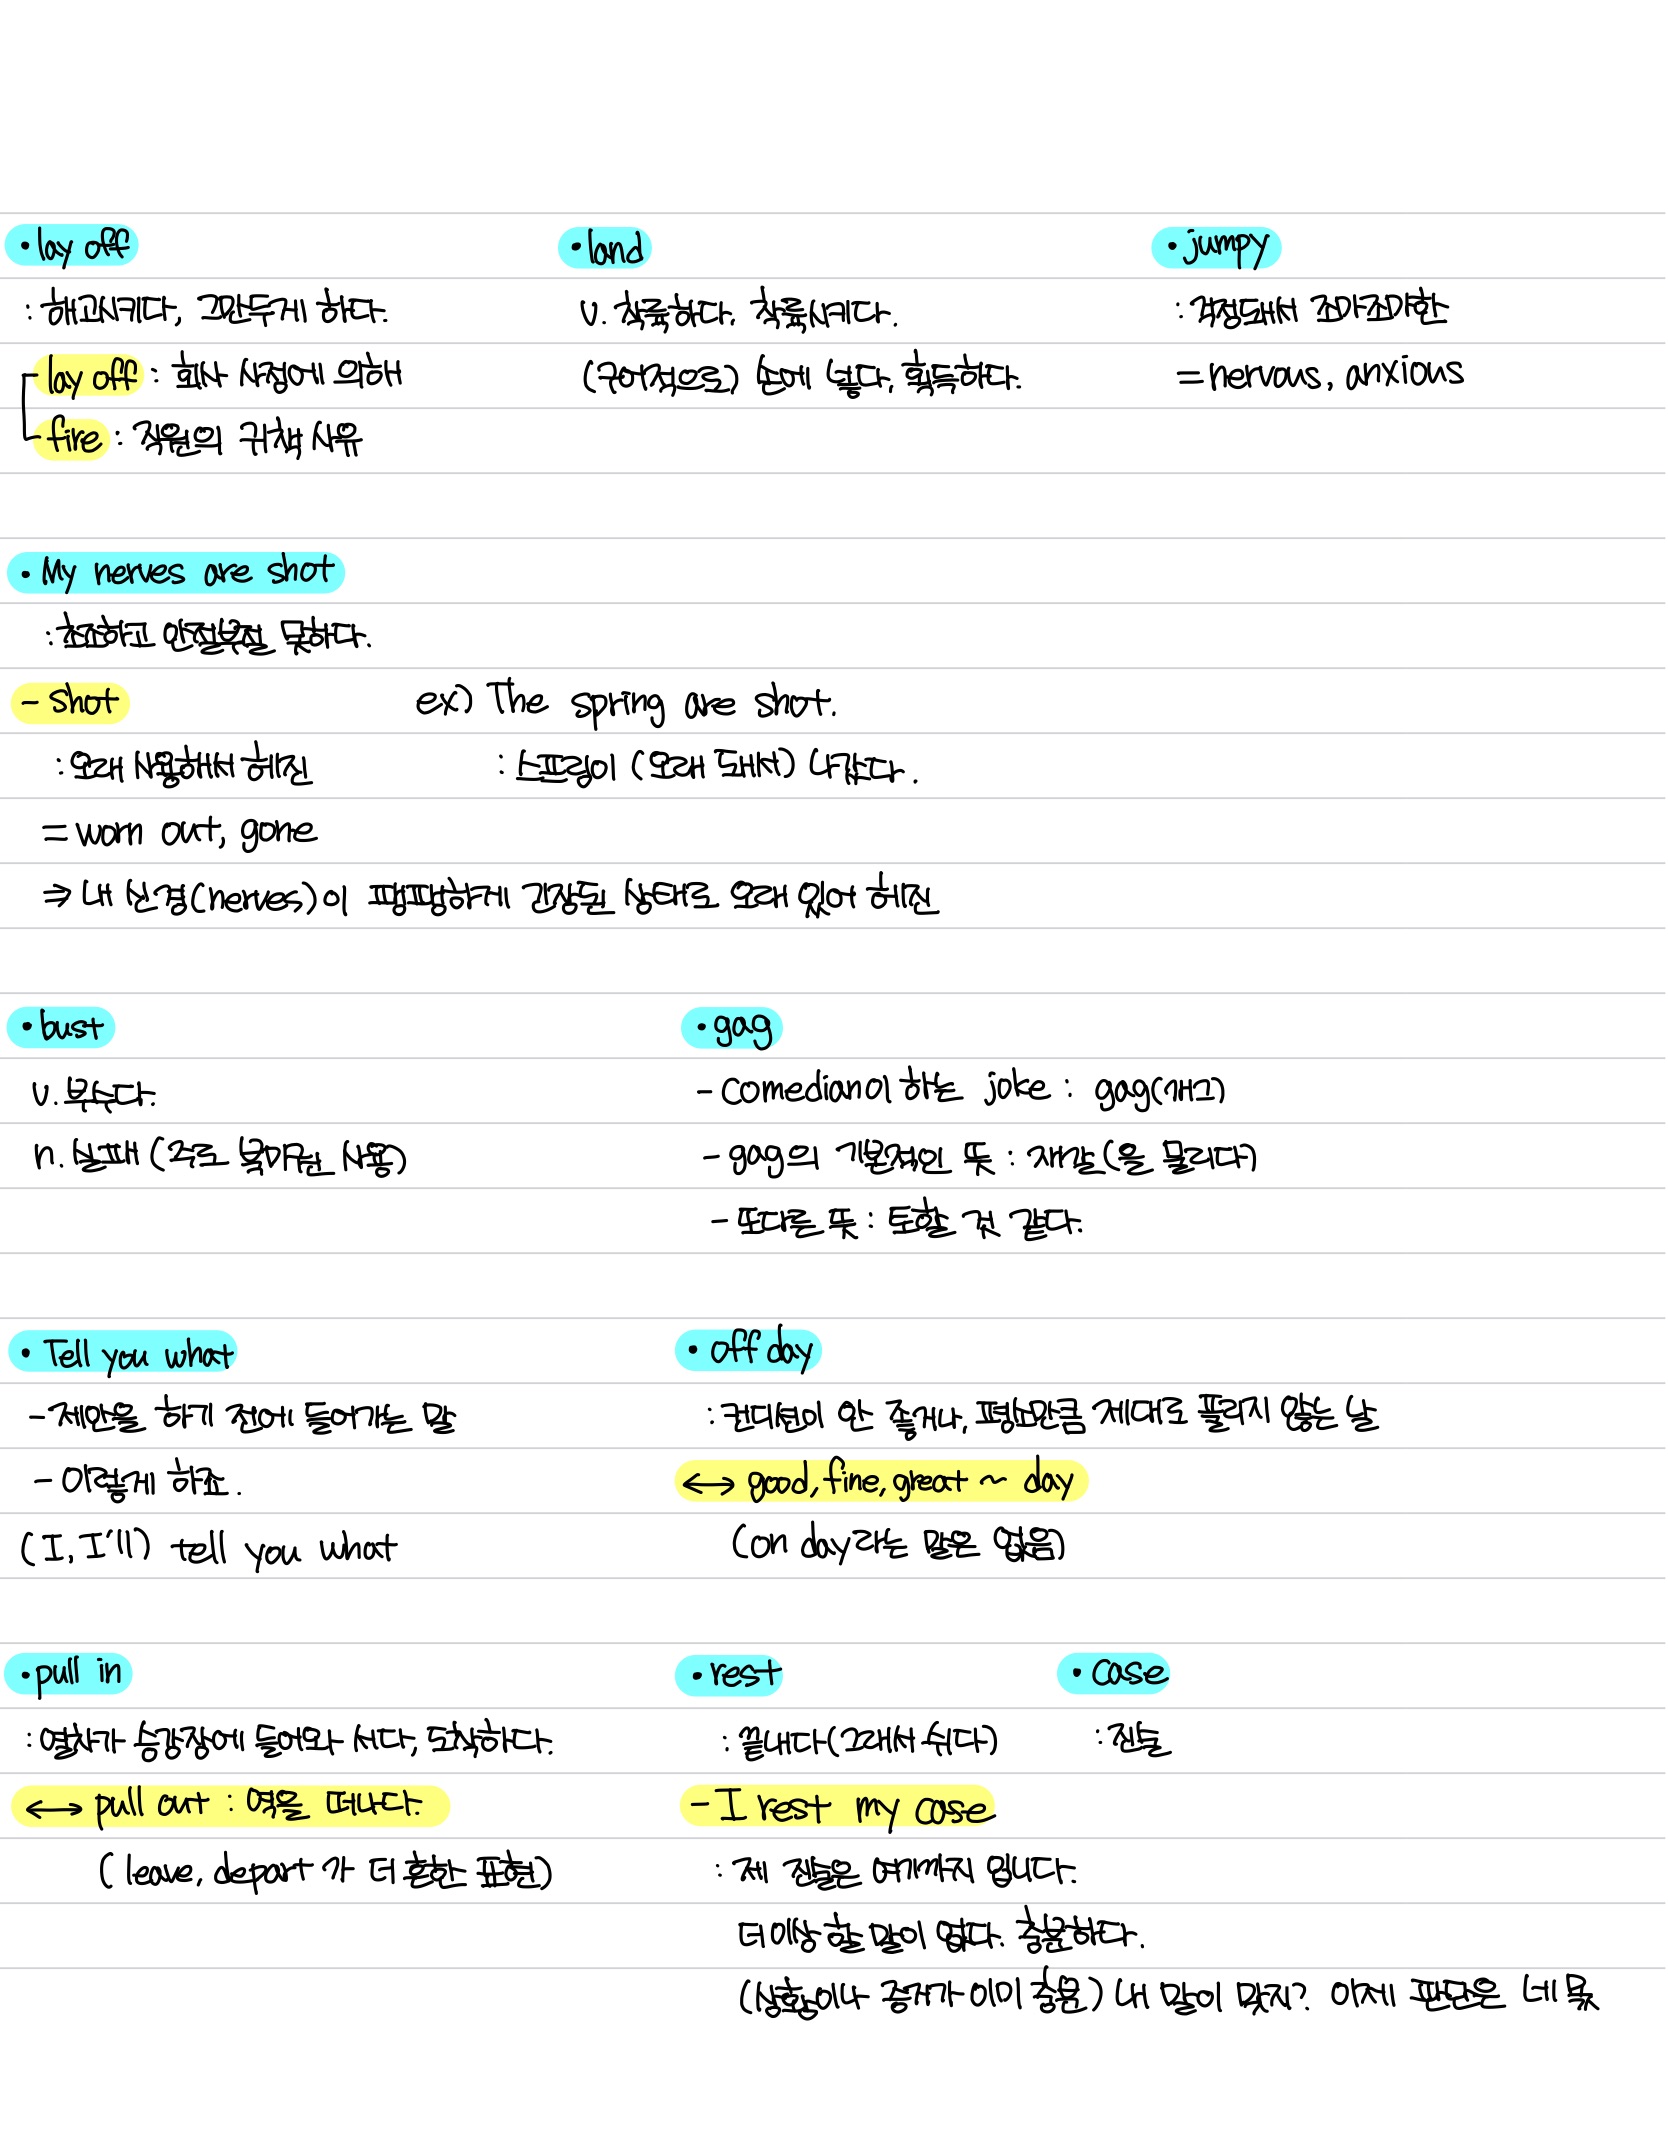 • lay off
: 해고시키다, 그만두게 하다.
lay off : 회사 사정에 의해
fire : 직원의 귀책 사유
• land
v. 착륙하다. 착륙시키다.
(구어적으로) 손에 넣다, 획득하다.
• jumpy
: 걱정돼서 조마조마한
= nervous, anxious
• My nerves are shot
: 초조하고 안절부절 못하다.
- shot
: 오래 사용해서 헤진
= worn out, gone
ex) The spring are shot.
: 스프링이 (오래 돼서) 나갔다.
⇒ 내 신경(nerves)이 팽팽하게 긴장된 상태로 오래 있어 헤진
• bust
v. 부수다.
n. 실패 (주로 북미권 사용)
• gag
- Comedian이 하는 joke : gag(개그)
- gag의 기본적인 뜻 : 재갈(을 물리다)
- 또다른 뜻 : 토할 것 같다.
• Tell you what
- 제안을 하기 전에 들어가는 말
- 이렇게 하죠.
(I, I'll) tell you what
• off day
: 컨디션이 안 좋거나, 평소만큼 제대로 풀리지 않는 날
↔ good, fine, great ~ day
(on day라는 말은 없음)
• pull in
: 열차가 승강장에 들어와 서다, 도착하다.
↔ pull out : 역을 떠나다.
(leave, depart가 더 흔한 표현)
• rest
: 끝내다(그래서 쉬다)
• case
: 진술
- I rest my case
: 제 진술은 여기까지 입니다.
더 이상 할 말이 없다. 충분하다.
(상황이나 증거가 이미 충분) 내 말이 맞지? 이제 판단은 네 몫